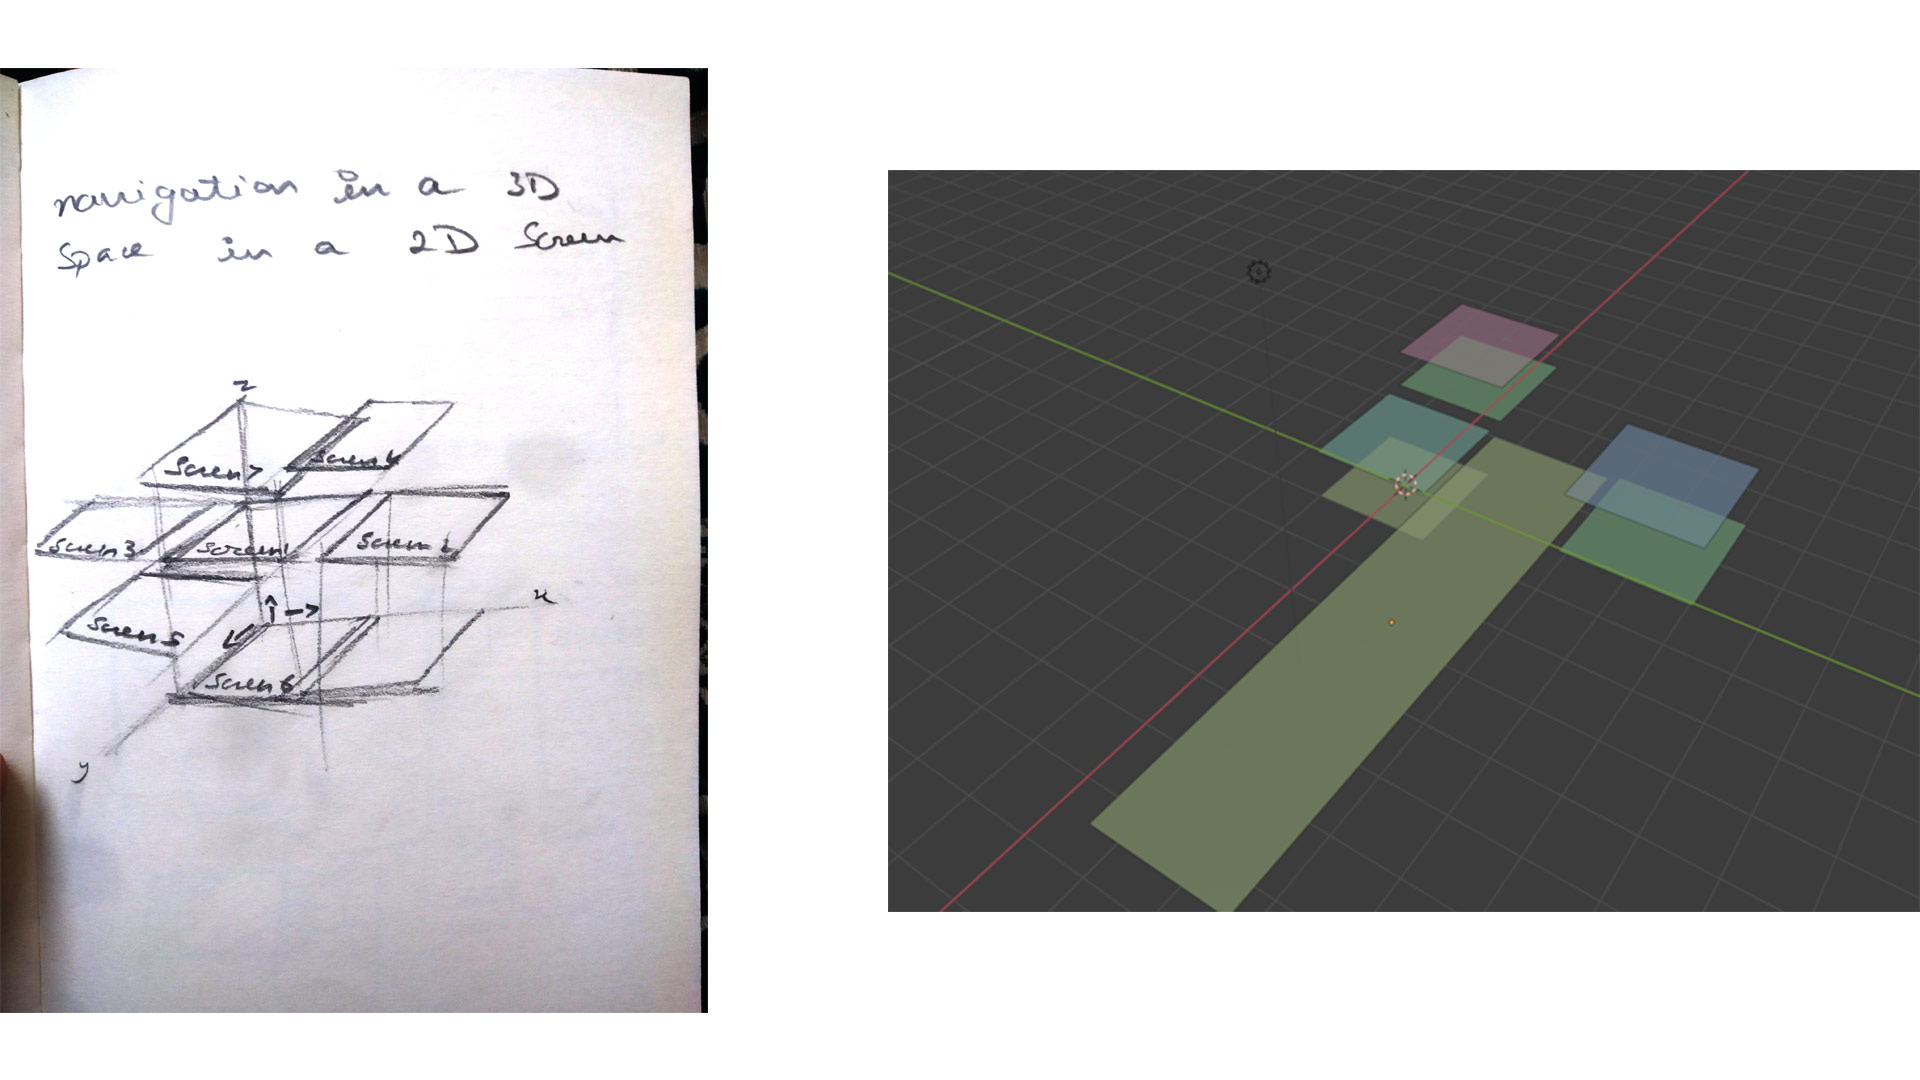 navigation in a 3D
Space in a 2D Screen
z
Screen 7
Screen 4
Screen 3
Screen 1
Screen 2
x
Screen 5
Screen 6
y